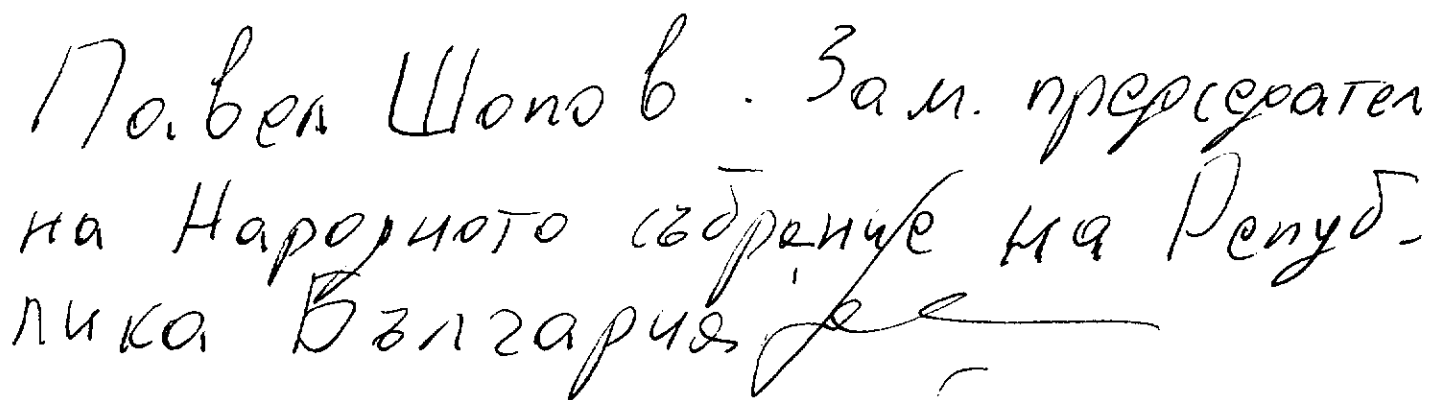 Павел Шопов. Зам. председател
на Народното събрание на Репуб-
лика България